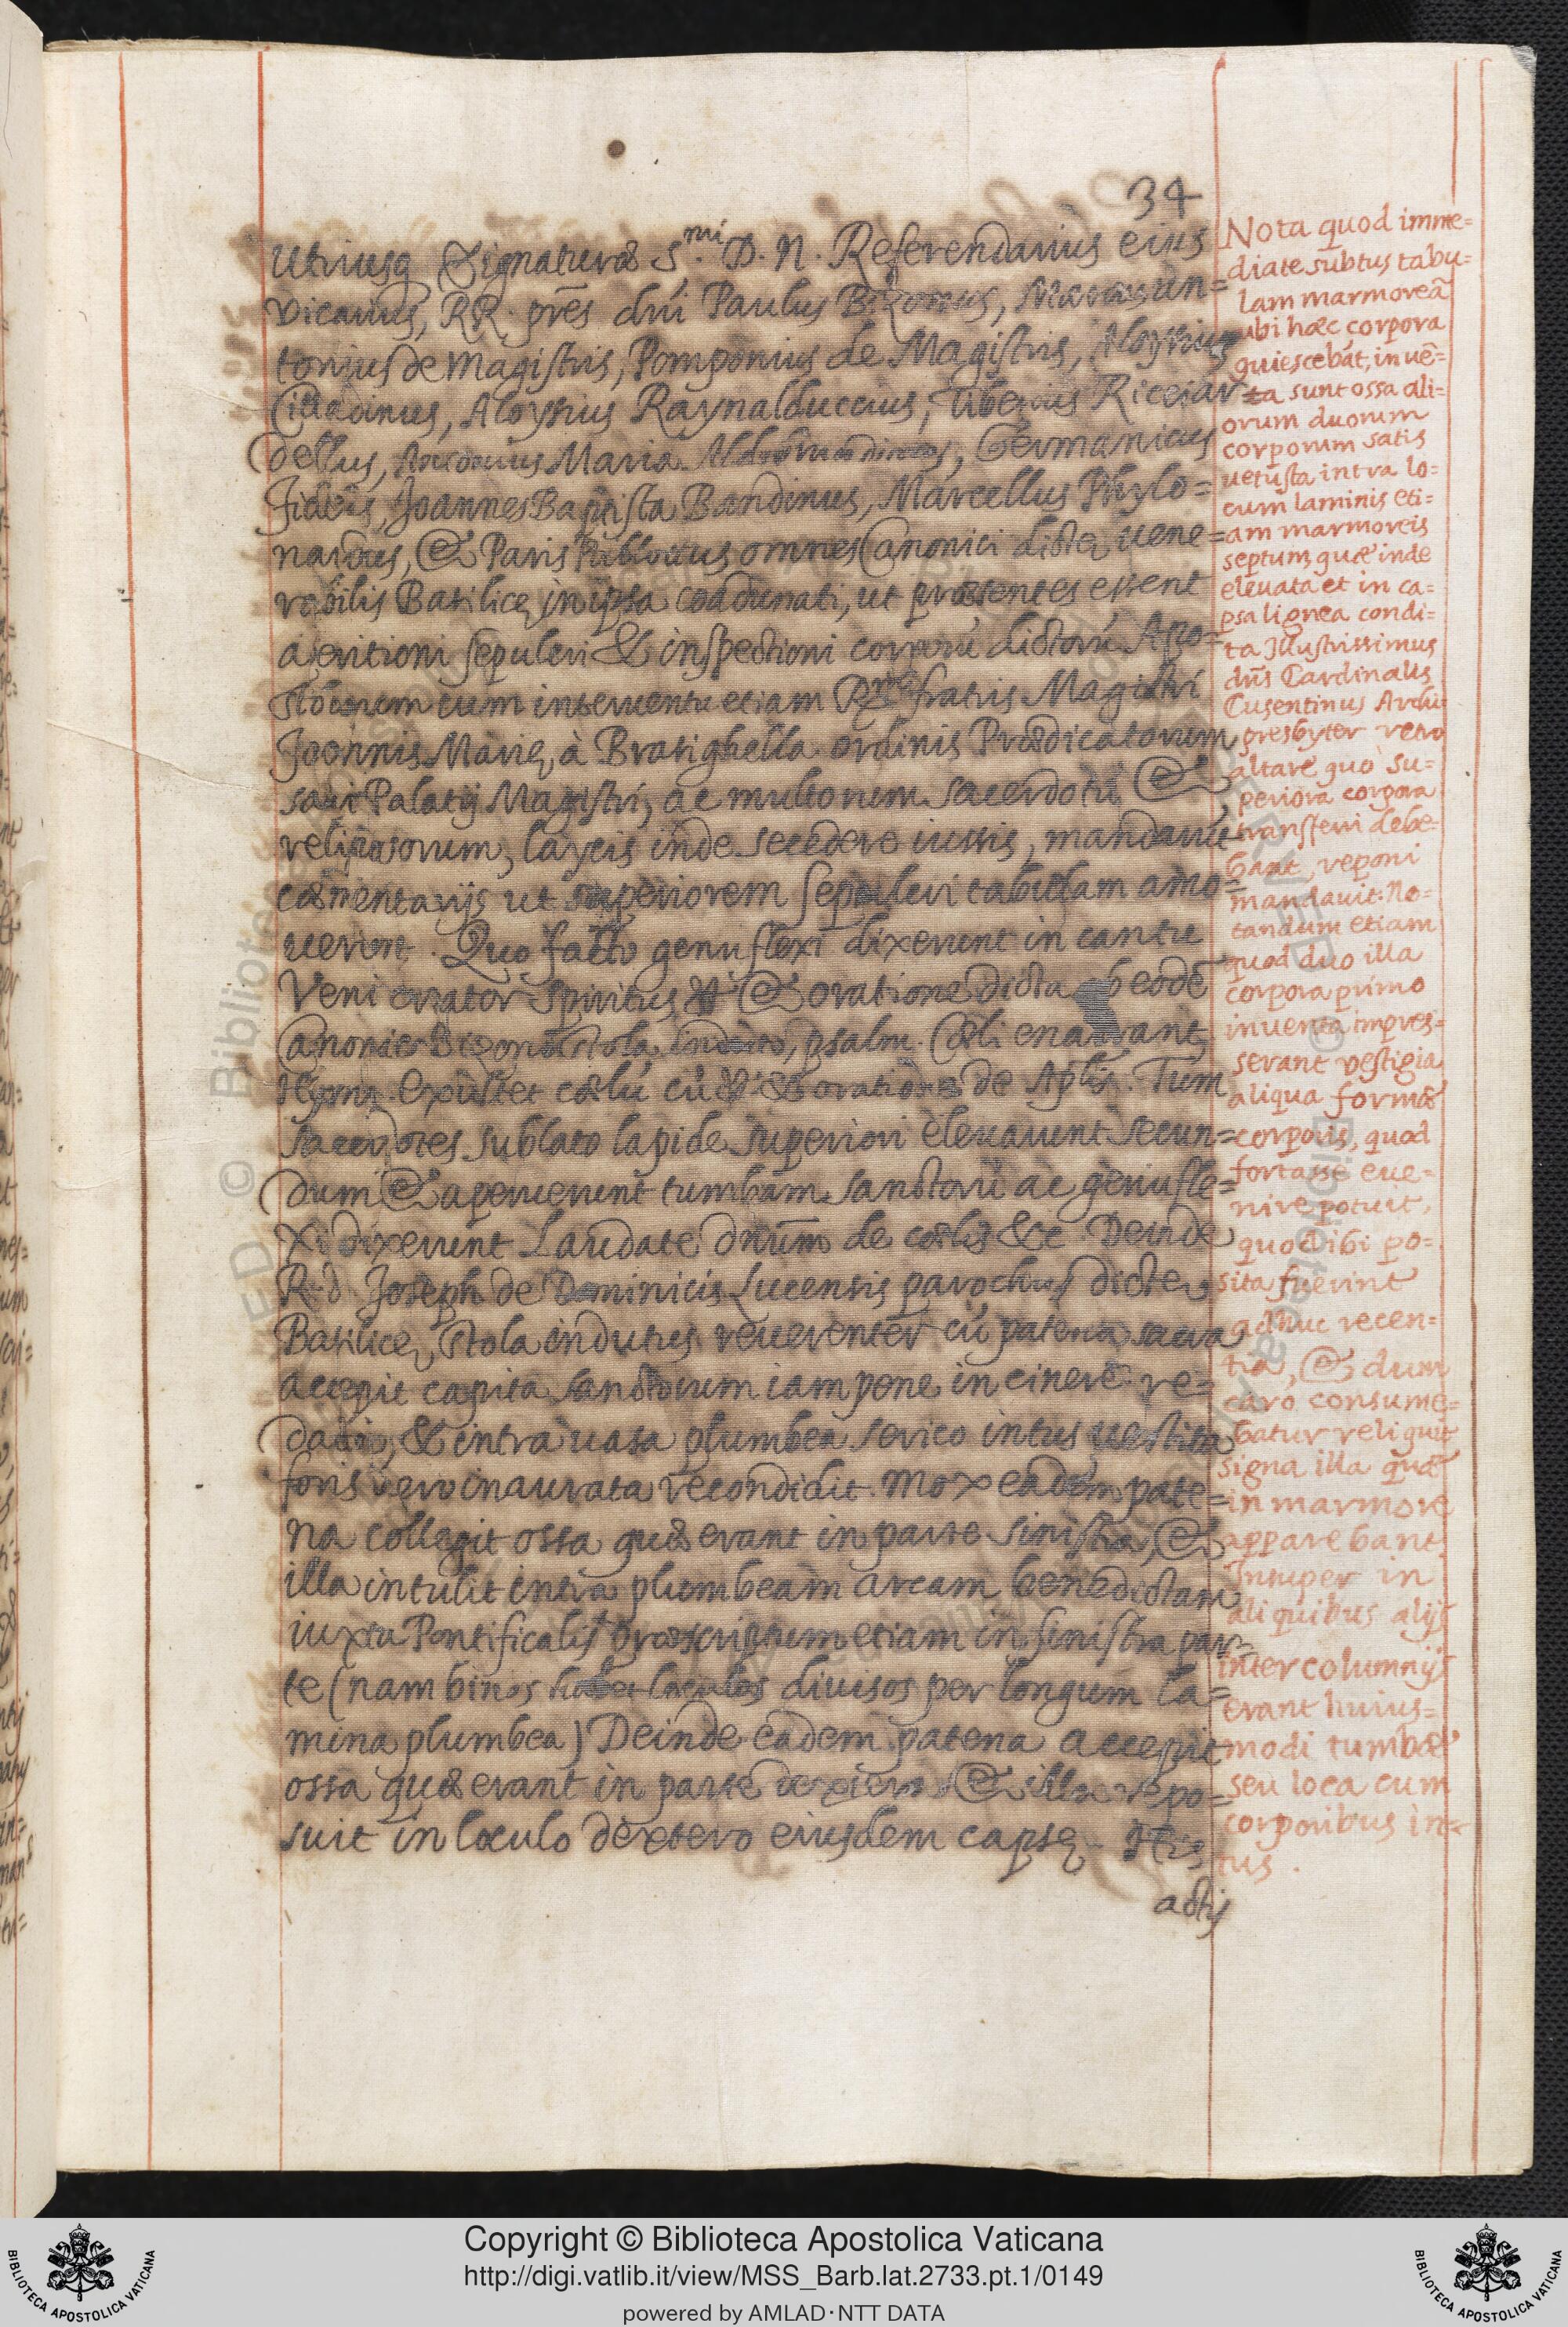 34
Utriusq Signaturæ S.mi D. N. Referendarius eius
Vicarius, RR. prēs dnī Paulus Bizonus, Marcus An=
tonius de Magistris, Pomponius de Magistris, Aloysius
Cittadinus, Aloysius Raynalduccius, Tiberius Ricciar
dellus, Maria Aldobrandinus, Germanicus
Fidelis, Joannes Baptista Bandinus, Marcellus Phylo=
nardus, & Paris Pallottus omnes Canonici dictę vene=
rabilis Basilicę in ipsa coadunati, ut præsentes essent
aperitioni sepulcri & inspectioni corporū dictorū Apo=
stolorum cum interuentu etiam R.mi fratris Magistri
Joannis Marię à Brasighella ordinis Prædicatorum
sacri Palatij Magistri, ac multorum sacerdotū &
religiosorum, laycis inde secedere iussis, mandarūt
cæmentarijs ut superiorem sepulcri tabulam amo=
uerent. Quo facto genuflexi dixerunt in cantu
Veni creator Spiritus & oratione dicta ab eodē
Canonico Bizono stola induto, psalm. Cæli enarrant,
Hymn. Exultet cælū cū & oratione de Aplīs. Tum
sacerdotes sublato lapide superiori eleuarunt secun=
dum & aperuerunt tumbam sanctorū ac genufle=
xi dixerunt Laudate Dnūm de cælis &c Deinde
R. d. Joseph de Dominicis Lucensis parochus dictę
Basilicę, stola indutus reuerenter cū patena sacra
accepit capita sanctorum iam pene in cinerē re=
dacta, & intra uasa plumbea serico intus uestita
foris uero inaurata recondidit. Mox eadem pate=
na collegit ossa quæ erant in parte sinistra, &
illa intulit intra plumbeam arcam benedictam
iuxta Pontificalis præscriptum etiam in sinistra par=
te (nam binos habet loculos diuisos per longum la=
mina plumbea) Deinde eadem patena accepit
ossa quæ erant in parte dextera & illa repo=
suit in loculo dextero eiusdem capsę. His
actis
Nota quod imme=
diate subtus tabu=
lam marmoreā
ubi hæc corpora
quiescebāt, inuē=
ta sunt ossa ali=
orum duorum
corporum satis
uetusta intra lo=
cum laminis eti=
am marmoreis
septum, quæ inde
eleuata et in ca=
psa lignea condi=
ta Illustrissimus
dnīs Cardinalis
Cusentinus Archi
presbyter retro
altare quo su=
periora corpora
transferri debe=
bant, reponi
mandauit. No=
tandum etiam
quod duo illa
corpora primo
inuenta impres=
serant vestigia
aliqua formæ
corporis, quod
fortasse eue=
nire potuit,
quod ibi po=
sita fuerint
adhuc recen=
tia, & dum
caro consume=
batur reliquit
signa illa quæ
in marmore
apparebant
Insuper in
aliquibus alijs
intercolumnijs
erant huius=
modi tumbæ
seu loca cum
corporibus in=
tus.
Copyright © Biblioteca Apostolica Vaticana
http://digi.vatlib.it/view/MSS_Barb.lat.2733.pt.1/0149
powered by AMLAD·NTT DATA
BIBLIOTECA APOSTOLICA VATICANA
BIBLIOTECA APOSTOLICA VATICANA